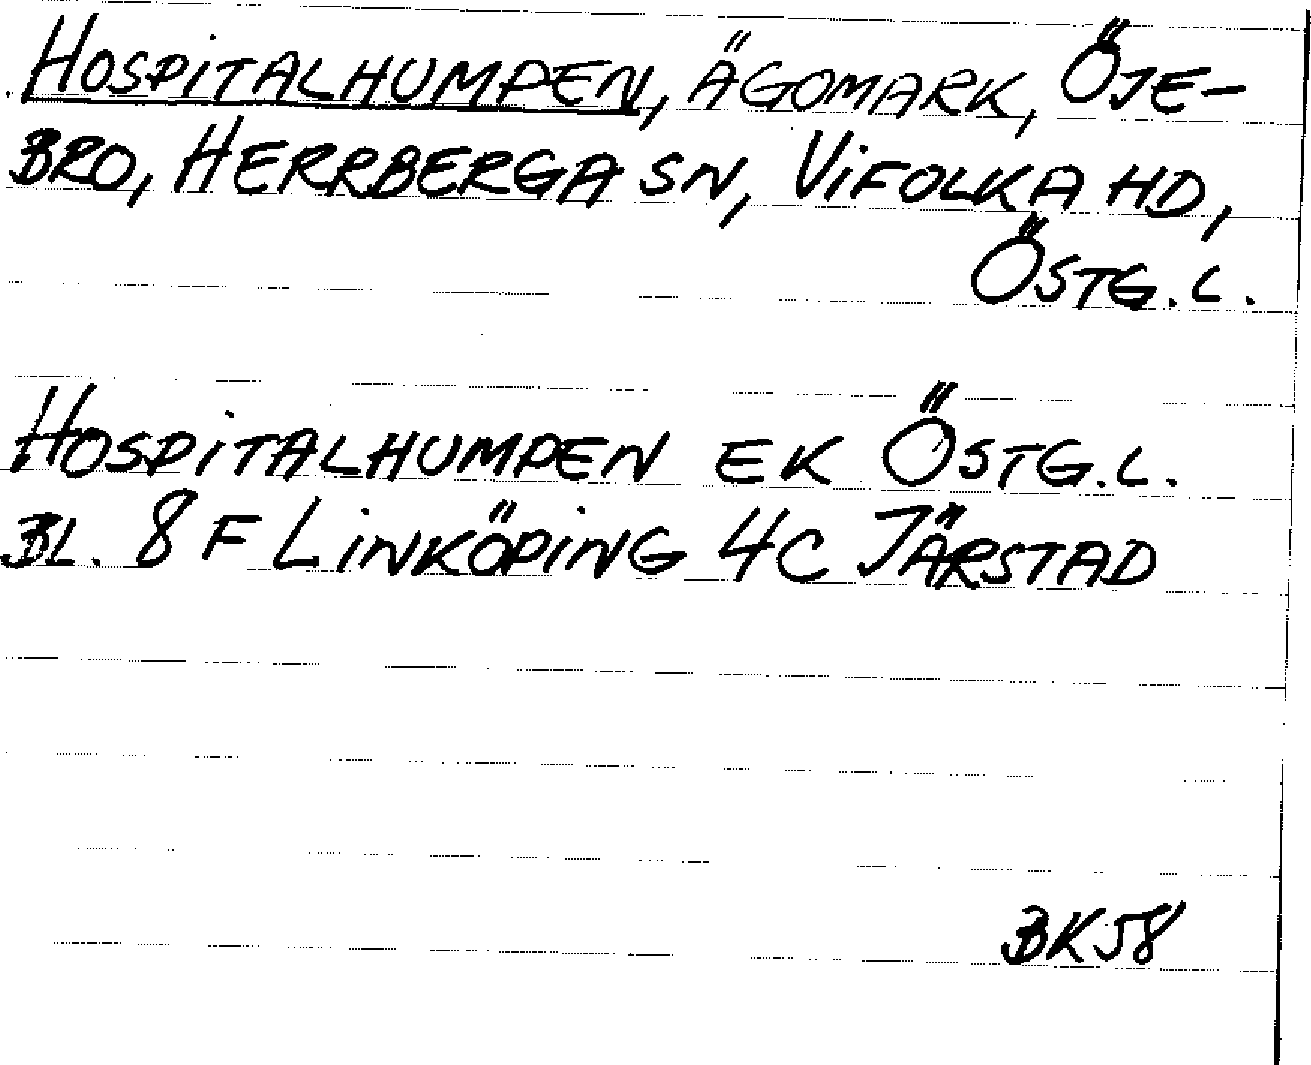 HOSPITALHUMPEN, ÄGOMARK, ÖJE-
BRO, HERRBERGA SN, VIFOLKA HD,
ÖSTG. L.
HOSPITALHUMPEN EK ÖSTG. L.
BL. 8 F LINKÖPING 4C JÄRSTAD
BK58